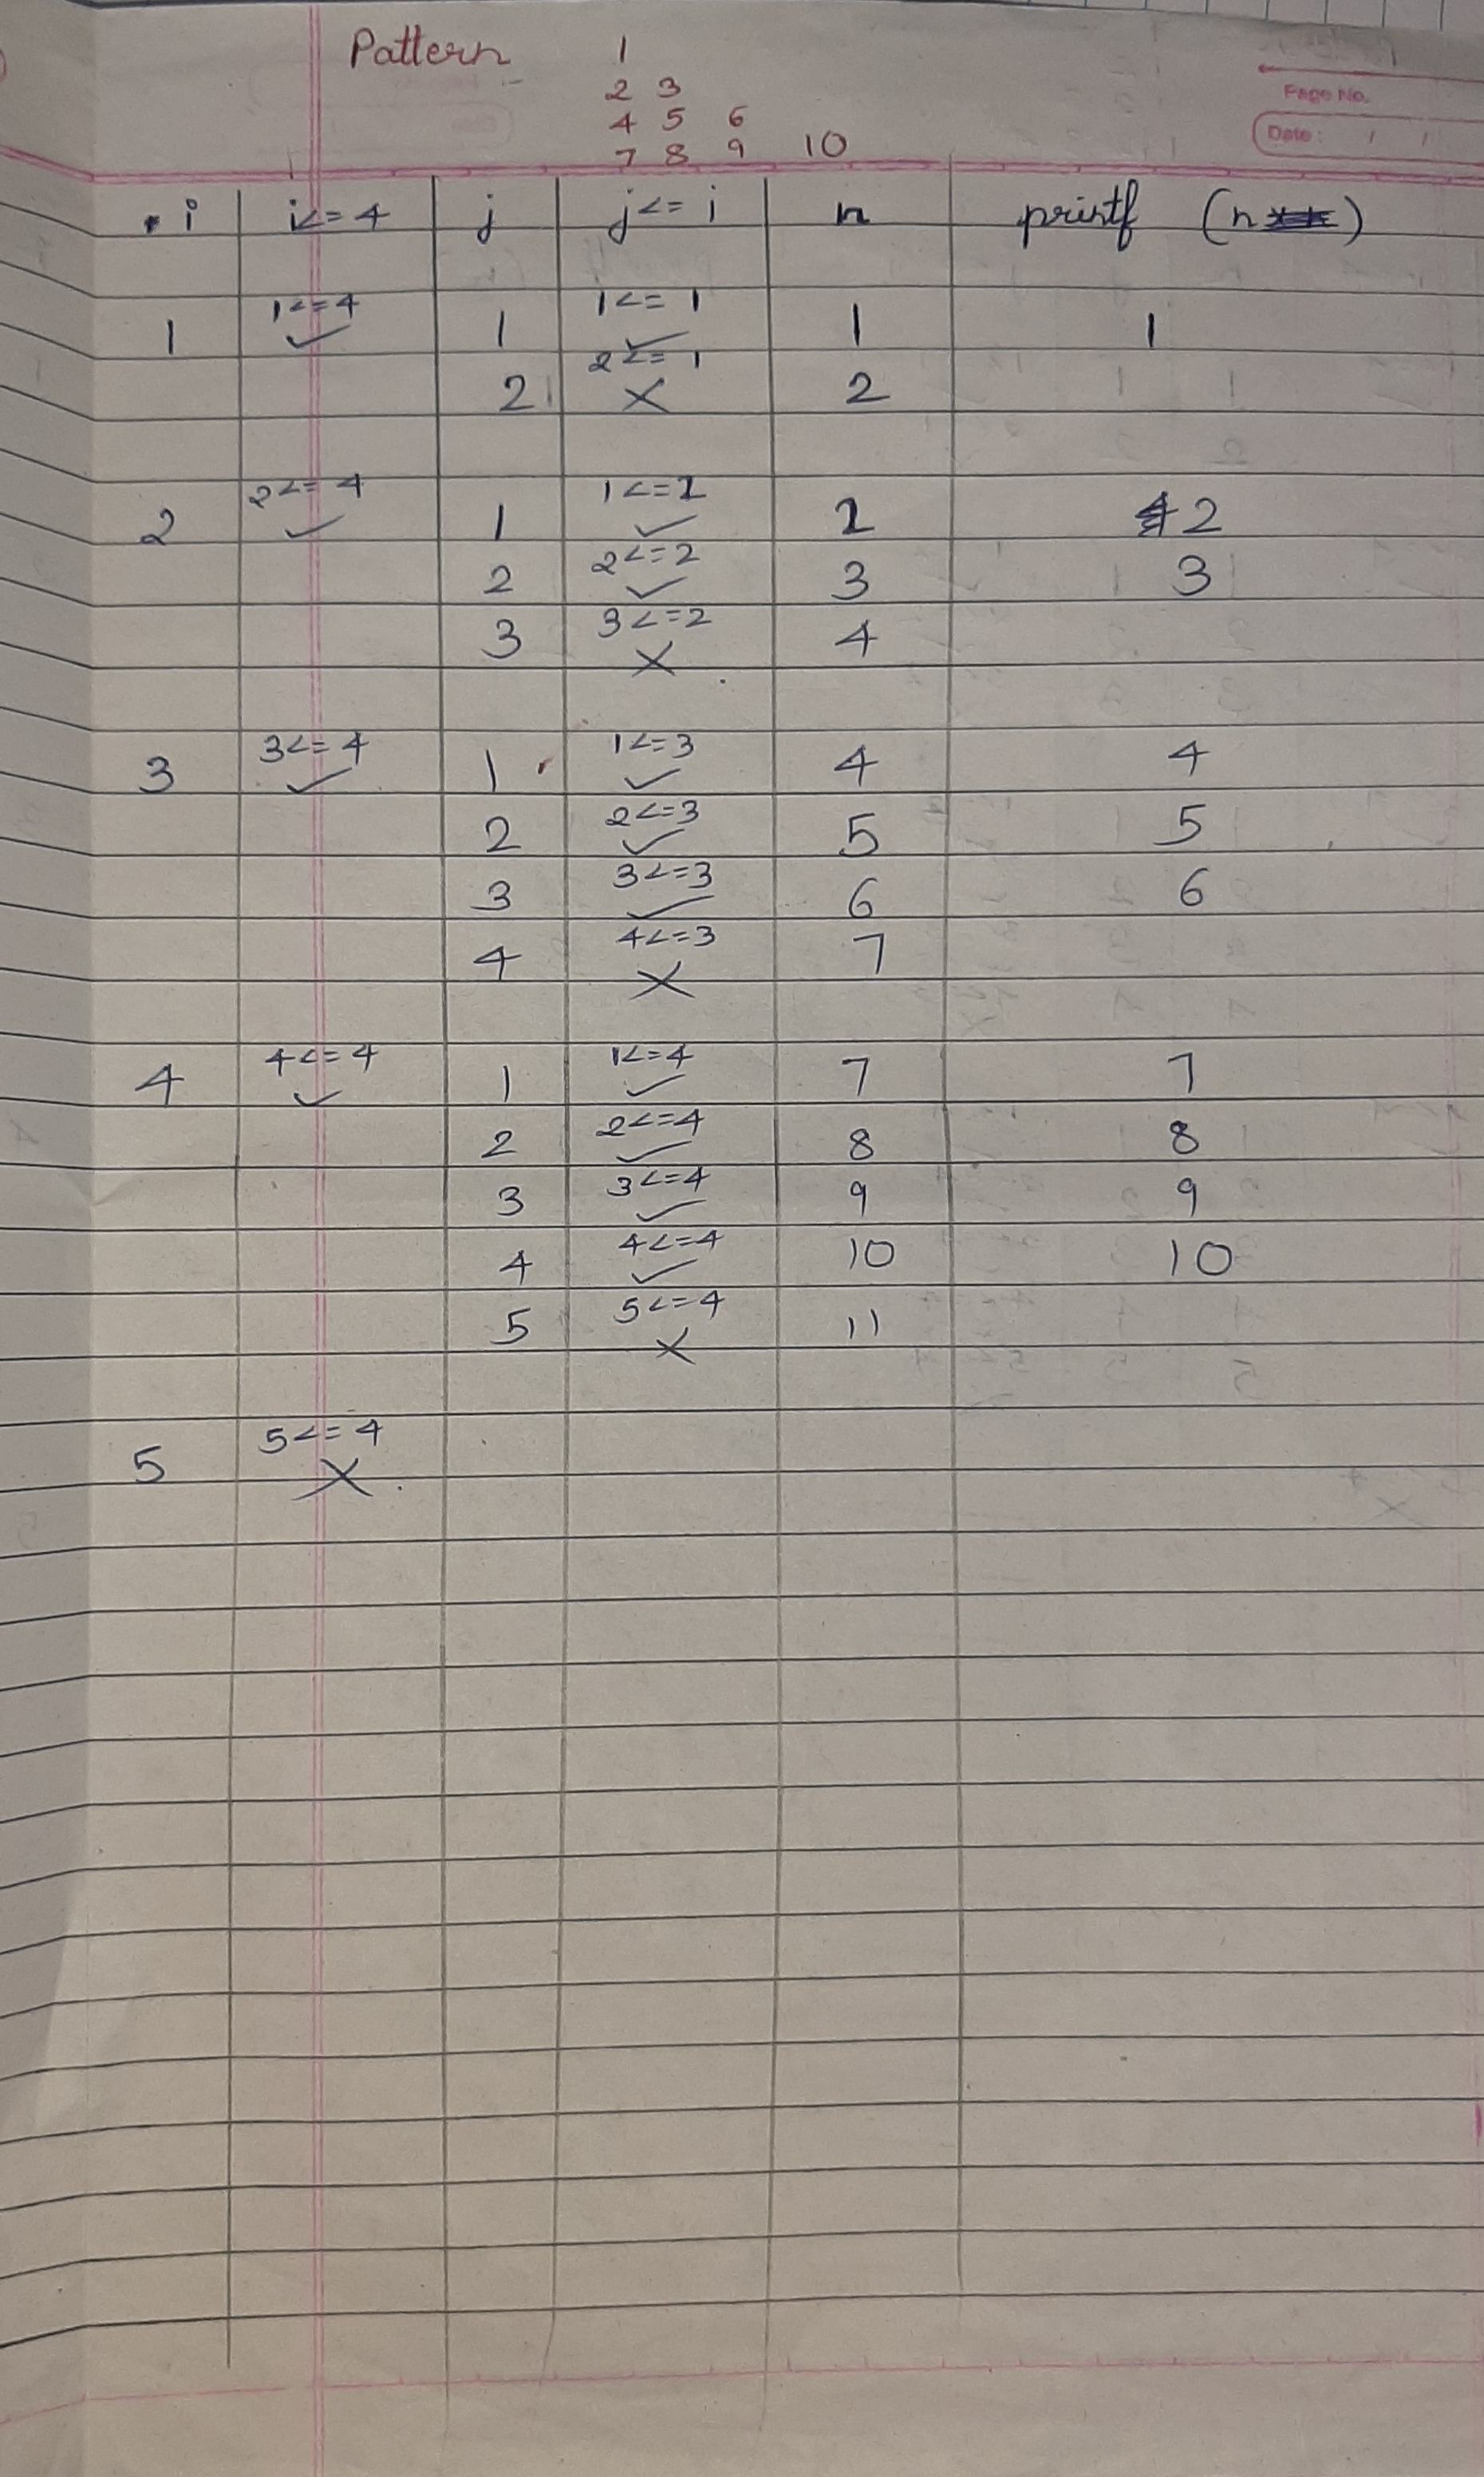 Pattern 1
2 3
4 5 6
7 8 9 10
Page No.
Date: / /
i i<=4 j j<=i n printf (n)
1 1<=4 ✓ 1 1<=1 ✓ 1 1
2 2<=1 X 2
2 2<=4 ✓ 1 1<=2 ✓ 2 2
2 2<=2 ✓ 3 3
3 3<=2 X 4
3 3<=4 ✓ 1 1<=3 ✓ 4 4
2 2<=3 ✓ 5 5
3 3<=3 ✓ 6 6
4 4<=3 X 7
4 4<=4 ✓ 1 1<=4 ✓ 7 7
2 2<=4 ✓ 8 8
3 3<=4 ✓ 9 9
4 4<=4 ✓ 10 10
5 5<=4 X 11
5 5<=4 X